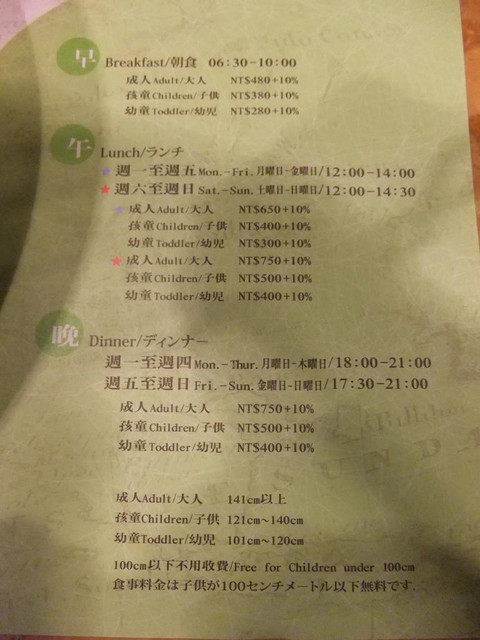 早 Breakfast/朝食 06:30-10:00
成人Adult/大人 NT$480+10%
孩童Children/子供 NT$380+10%
幼童Toddler/幼児 NT$280+10%
午 Lunch/ランチ
★週一至週五Mon.-Fri.月曜日-金曜日/12:00-14:00
★週六至週日Sat.-Sun.土曜日-日曜日/12:00-14:30
★成人Adult/大人 NT$650+10%
孩童Children/子供 NT$400+10%
幼童Toddler/幼児 NT$300+10%
★成人Adult/大人 NT$750+10%
孩童Children/子供 NT$500+10%
幼童Toddler/幼児 NT$400+10%
晚 Dinner/ディンナー
週一至週四Mon.-Thur.月曜日-木曜日/18:00-21:00
週五至週日Fri.-Sun.金曜日-日曜日/17:30-21:00
成人Adult/大人 NT$750+10%
孩童Children/子供 NT$500+10%
幼童Toddler/幼児 NT$400+10%
成人Adult/大人 141cm以上
孩童Children/子供 121cm~140cm
幼童Toddler/幼児 101cm~120cm
100cm以下不用收費/Free for Children under 100cm
食事料金は子供が100センチメートル以下無料です.